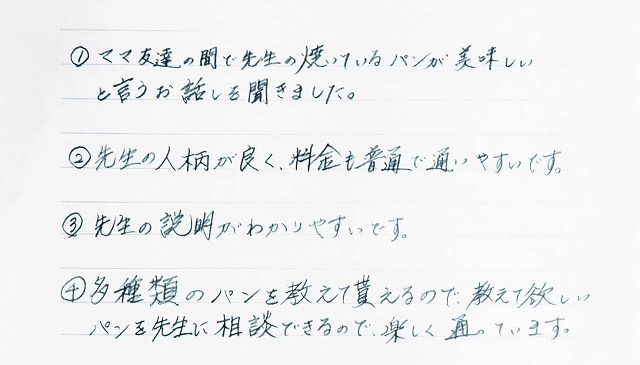 ① ママ友達の間で先生の焼っているパンが美味しい
と言うお話しを聞きました。
② 先生の人柄が良く、料金も普通で通いやすいです。
③ 先生の説明がわかりやすいです。
④ 多種類のパンを教えて貰えるので、教えて欲しい
パンを先生に相談できるので、楽しく通っています。